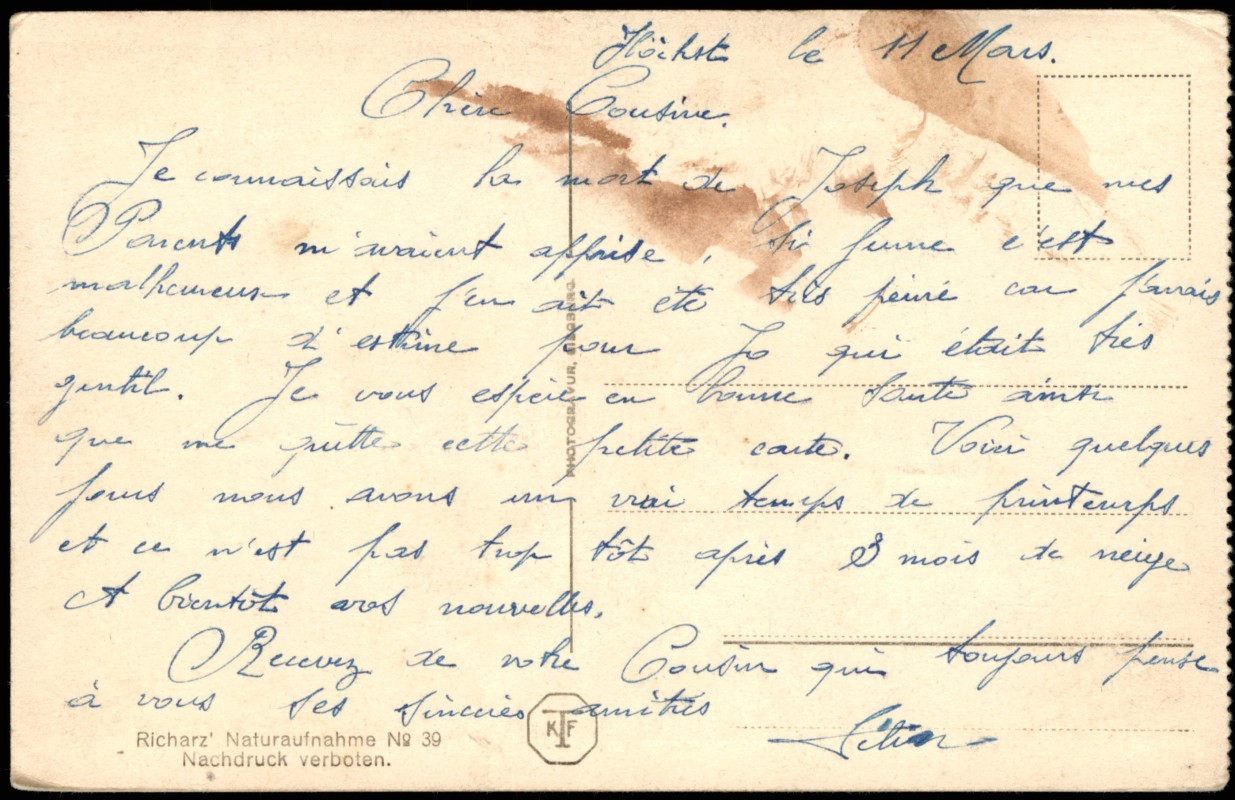 Höchst le 11 Mars.
Chère Cousine.
Je connaissais la mort de Joseph que mes
Parents m'avaient apprise, si jeune c'est
malheureux et j'en ait été très peiné car j'avais
beaucoup d'estime pour Jo qui était très
gentil. Je vous espère en bonne santé ainsi
que me quitte cette petite carte. Voici quelques
jours nous avons un vrai temps de printemps
et ce n'est pas trop tôt après 3 mois de neige
A bientôt vos nouvelles.
Recevez de votre Cousin qui toujours pense
à vous ses sincères amitiés
PHOTOGRAVUR,
K T F
Richarz' Naturaufnahme № 39
Nachdruck verboten.